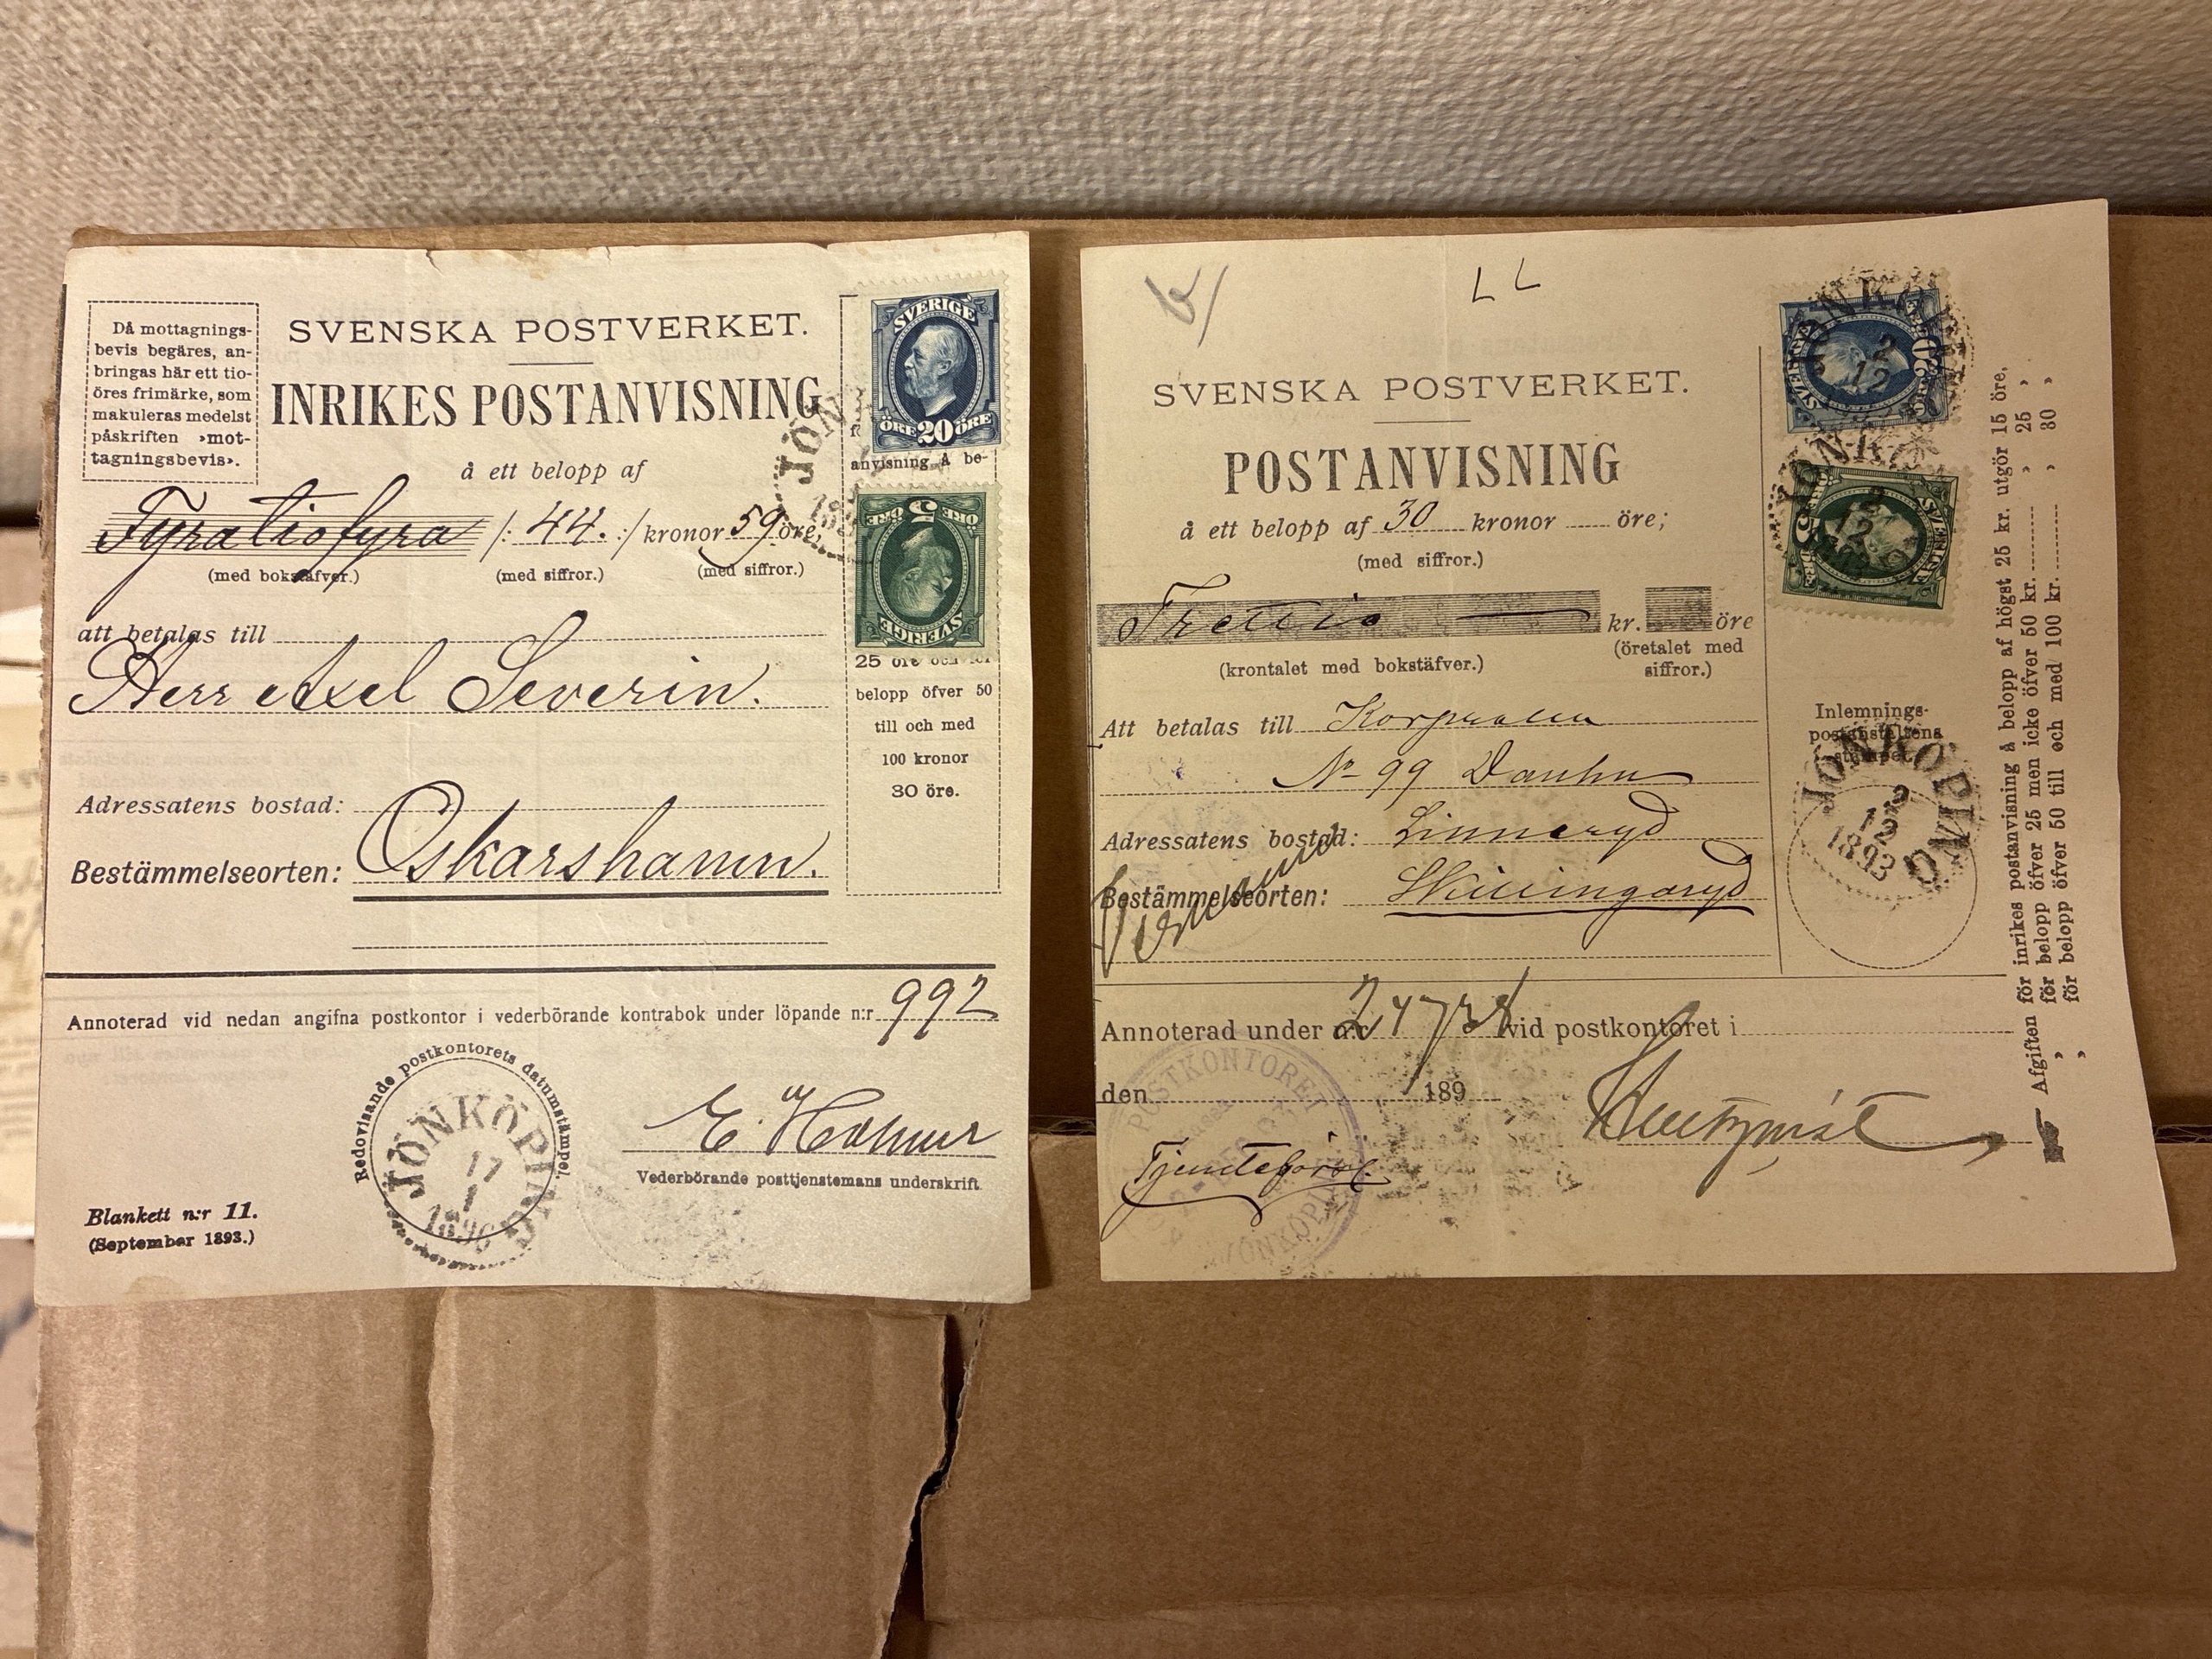 Då mottagnings-
bevis begäres, an-
bringas här ett tio-
öres frimärke, som
makuleras medelst
påskriften ›mot-
tagningsbevis›.
SVENSKA POSTVERKET.
INRIKES POSTANVISNING
å ett belopp af
Fyratiofyra /: 44. :/ kronor 59 öre,
(med bokstäfver.) (med siffror.) (med siffror.)
att betalas till
Herr Axel Severin.
Adressatens bostad:
Bestämmelseorten: Oskarshamn.
SVERIGE
ÖRE 20 ÖRE
anvisning å be-
ÖRE 5 ÖRE
SVERIGE
25 öre och för
belopp öfver 50
till och med
100 kronor
30 öre.
JÖN
Annoterad vid nedan angifna postkontor i vederbörande kontrabok under löpande n:r 992
Redovisande postkontorets datumstämpel.
JÖNKÖPING
17
1
1896
E. Holmer
Vederbörande posttjenstemans underskrift
Blankett n:r 11.
(September 1893.)
LL
SVENSKA POSTVERKET.
POSTANVISNING
å ett belopp af 30 kronor öre;
(med siffror.)
Trettio kr. öre
(krontalet med bokstäfver.) (öretalet med
siffror.)
Att betalas till Korpralen
No 99
Adressatens bostad: Linneryd
Bestämmelseorten: Skillingaryd
SVERIGE
20
2
12
SVERIGE
5
2
12
Inlemnings-
postanstaltens
stämpel.
JÖNKÖPING
2
12
1893
Annoterad under n:r 2473 vid postkontoret i
den 189
POSTKONTORET
JÖNKÖPING
Afgiften för inrikes postanvisning å belopp af högst 25 kr. utgör 15 öre,
› för belopp öfver 25 men icke öfver 50 kr. › 25 ›
› för belopp öfver 50 till och med 100 kr. › 30 ›